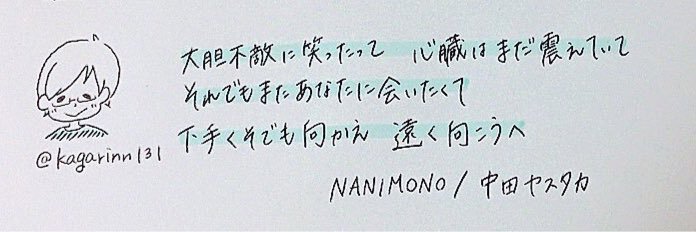 大胆不敵に笑ったって 心臓はまだ震えていて
それでもまたあなたに会いたくて
下手くそでも向かえ 遠く向こうへ
@kagarinn131
NANIMONO/中田ヤスタカ